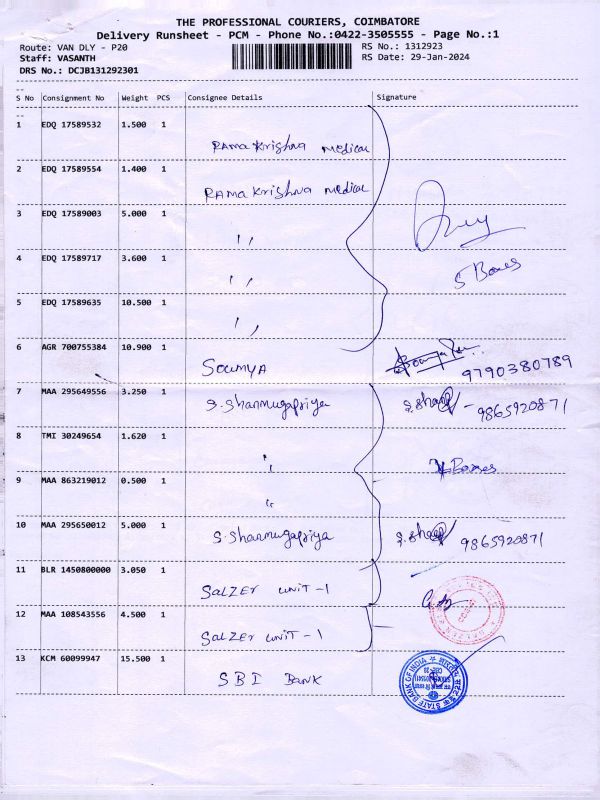 THE PROFESSIONAL COURIERS, COIMBATORE
Delivery Runsheet - PCM - Phone No.:0422-3505555 - Page No.:1
Route: VAN DLY - P20 RS No.: 1312923
Staff: VASANTH RS Date: 29-Jan-2024
DRS No.: DCJB131292301
S No Consignment No Weight PCS Consignee Details Signature
1 EDQ 17589532 1.500 1
RAMA Krishna Medical
2 EDQ 17589554 1.400 1
RAMA Krishna Medical
3 EDQ 17589003 5.000 1
,,
4 EDQ 17589717 3.600 1
,, 5 Boxes
5 EDQ 17589635 10.500 1
,,
6 AGR 700755384 10.900 1
SOUMYA 9790380789
7 MAA 295649556 3.250 1
S. Shanmugapriya S. Shan - 9865920871
8 TMI 30249654 1.620 1
,, Boxes
9 MAA 863219012 0.500 1
,,
10 MAA 295650012 5.000 1
S. Shanmugapriya S. Shan 9865920871
11 BLR 1450800000 3.050 1
SALZER UNIT -1
12 MAA 108543556 4.500 1
SALZER UNIT -1
13 KCM 60099947 15.500 1
SBI BANK
STATE BANK OF INDIA